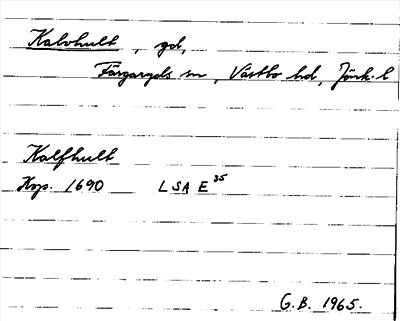 Kalvhult, gd,
Färgaryds sn, Västbo hd, Jönk. l
Kalfhult
Kop. 1690 LSA E 35
G.B. 1965.